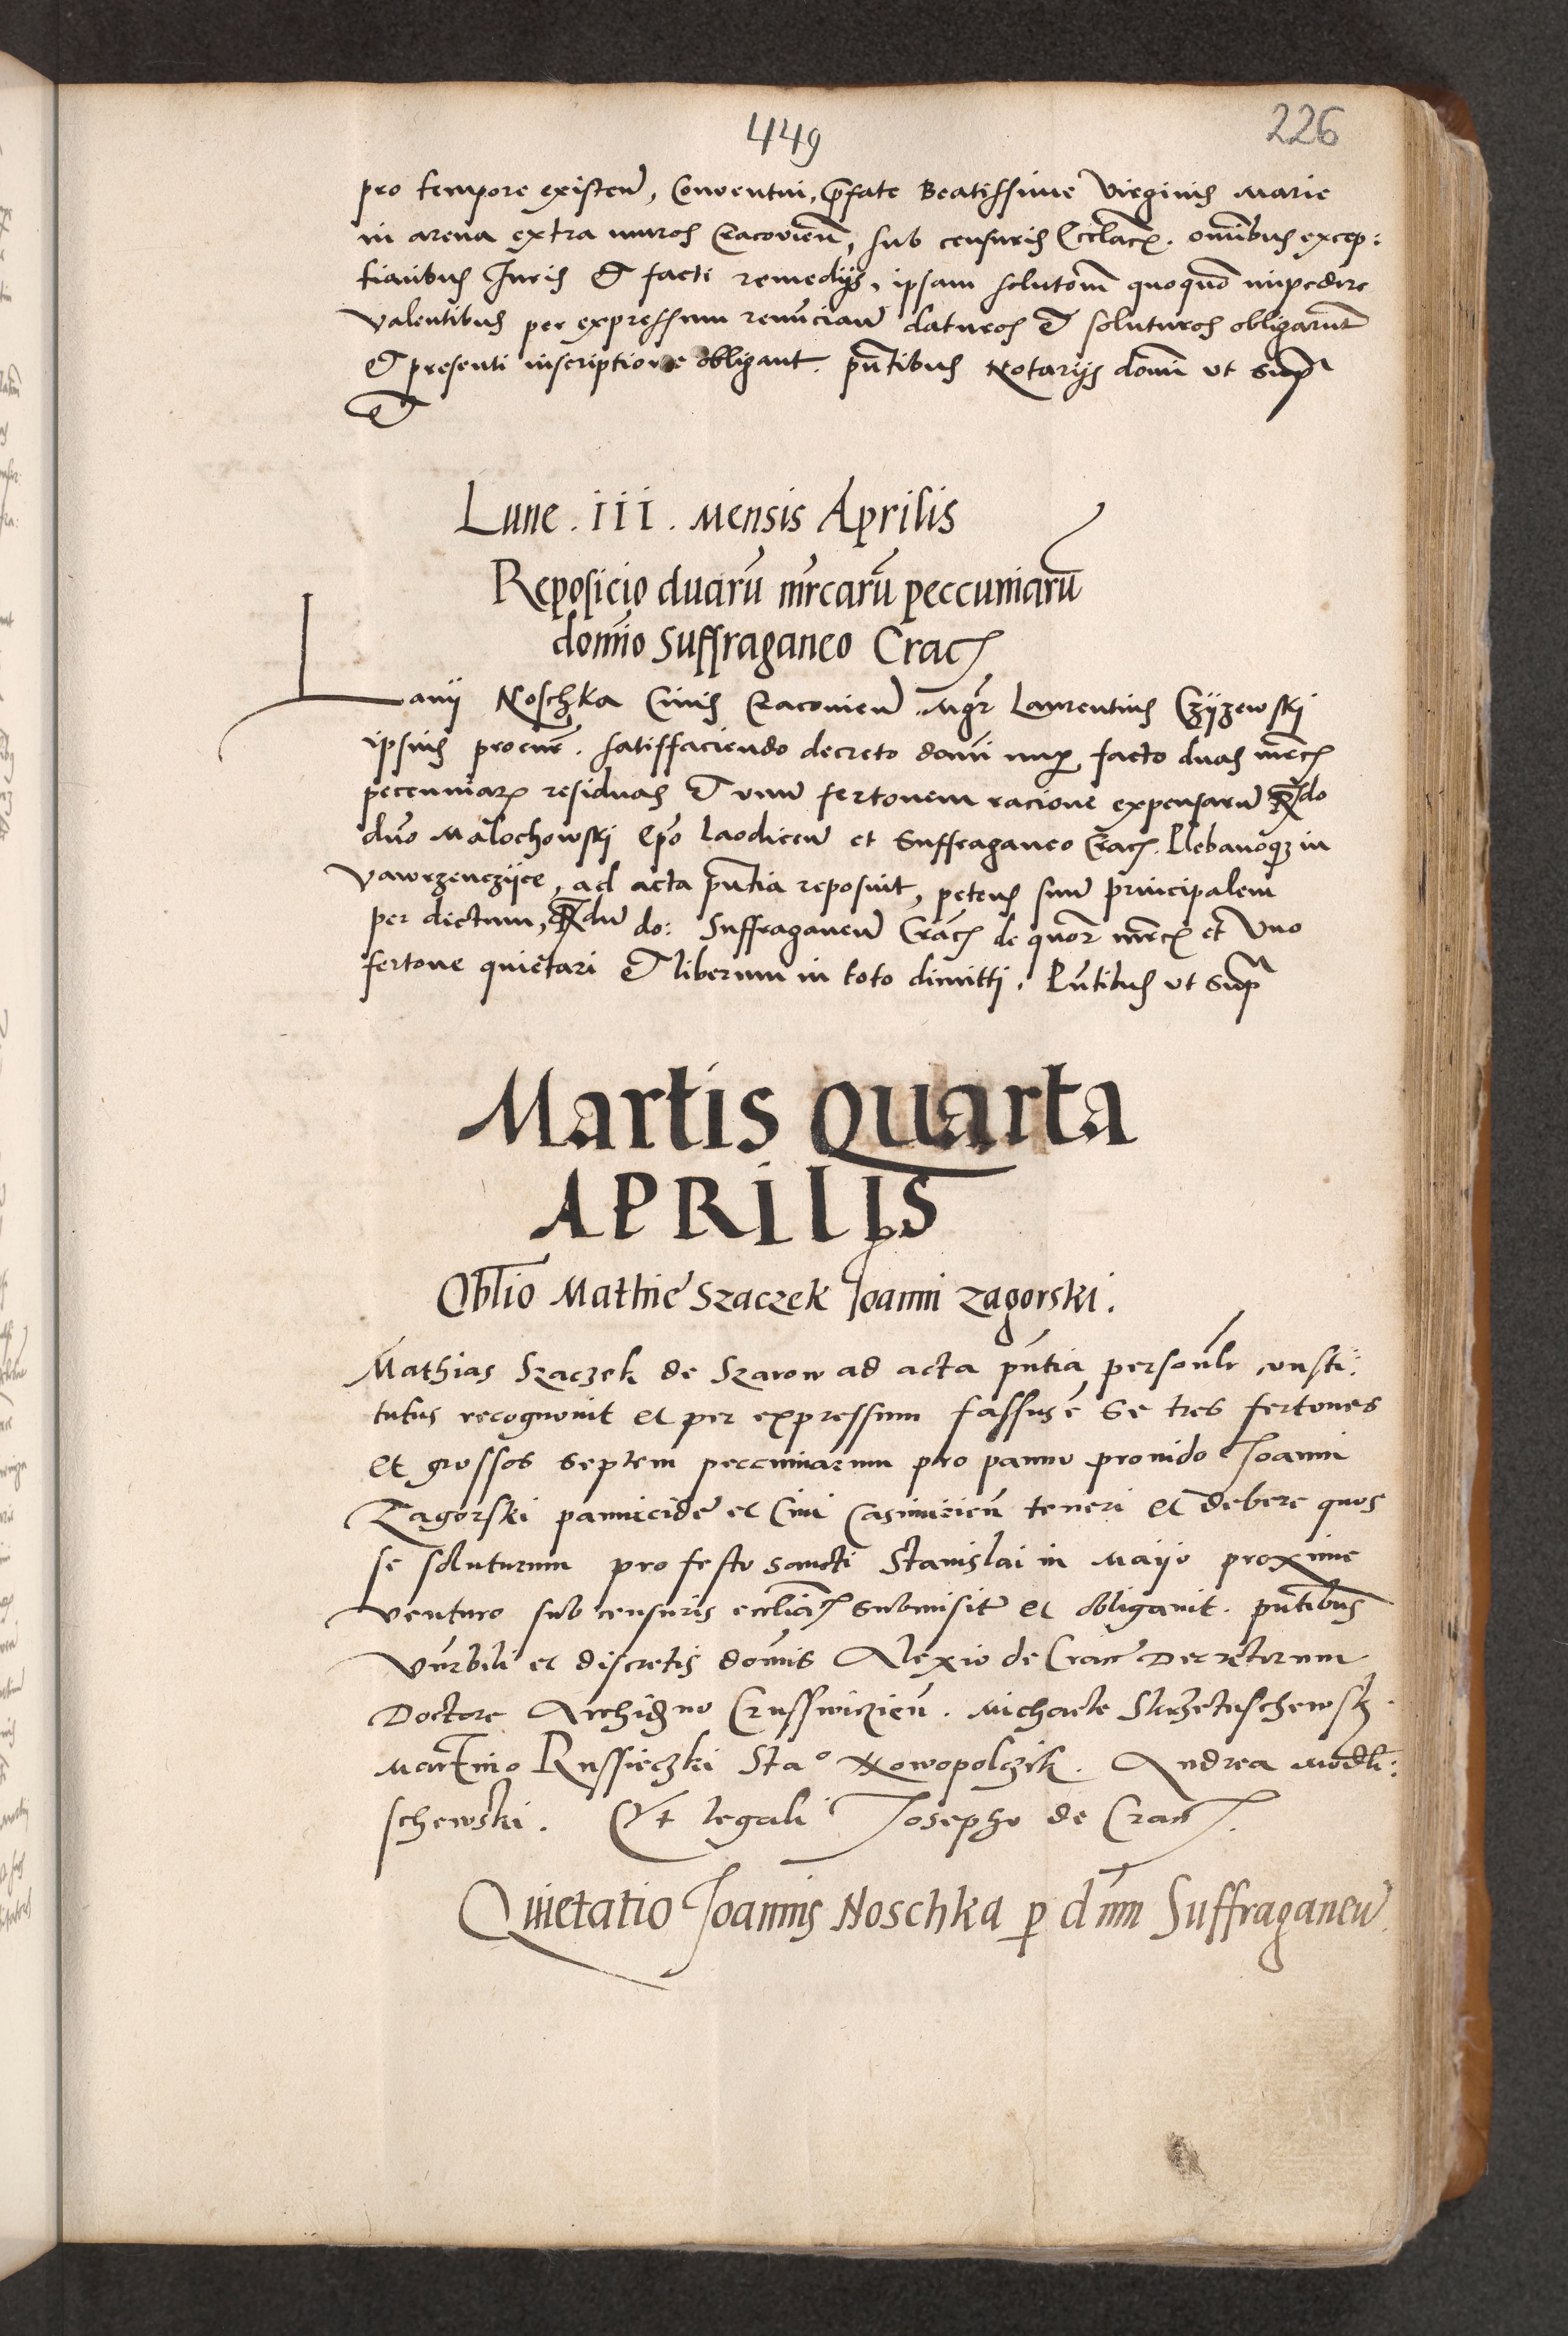 449
226
pro tempore existen̄, Conventui, p̄fate Beatissime Virginis Marie
in arena extra muros Cracovien̄, sub censuris Ecclac̄. om̄ibus excep:
tionibus Juris et facti remedijs, ipsam solutōm quoquō impedire
valentibus per expressum renūciañ daturos et soluturos obligarūt
et presenti inscriptione obligant. pn̄tibus Notarijs domī ut Sup̄
et
Lune . iii . Mensis Aprilis
Reposicio duarū mr̄carū peccuniarū
domīo Suffraganeo Crac̄
Ianij Noschka Civis Cracovien̄ . Mgr̄ Laurentius Czyzewski
ipsius procur̄ . satisfaciendo decreto domī nup̄ facto duas mr̄c̄
peccuniar̄ residuas et unū fertonem racione expensarū R̄do
dn̄o Malochowski Ep̄o Laodiceñ et Suffraganeo Crac̄ . Plebanoq̄ in
Vawrzenczijce, ad acta pn̄tia reposuit, petens suū principalem
per dictum, R̄dū do: Suffraganeū Crac̄ de quor̄ mr̄c̄ et Uno
fertone quietari et liberum in toto dimitti . Pn̄tibus ut Sup̄
Martis Quarta
APRilis
Oblīo Mathie Szaczek Joanni Zagorski .
Mathias Szaczek de Szarow ad acta pn̄tia persoñlr consti:
tutus recognovit et per expressum fassus ē Se tres fertones
et grossos Septem peccuniarum pro panno provido Joanni
Zagorski pannicide et Civi Casimirien̄ teneri et debere quos
se soluturum pro festo sancti Stanislai in Maijo proxime
venturo sub censuris eccliac̄ Submisit et obligavit . pn̄tibus
Vn̄rbili et discretis domīs Alexio de Crac̄ Decretorum
Doctore Archid̄no Crusswiczien̄ . Michaele
Martino Russieczki Sta° Nowopolczik . Andrea Modli:
schewski . Et legali Josepho de Crac̄ .
Quietatio Joannis Noschka p̄ dn̄m Suffraganeū